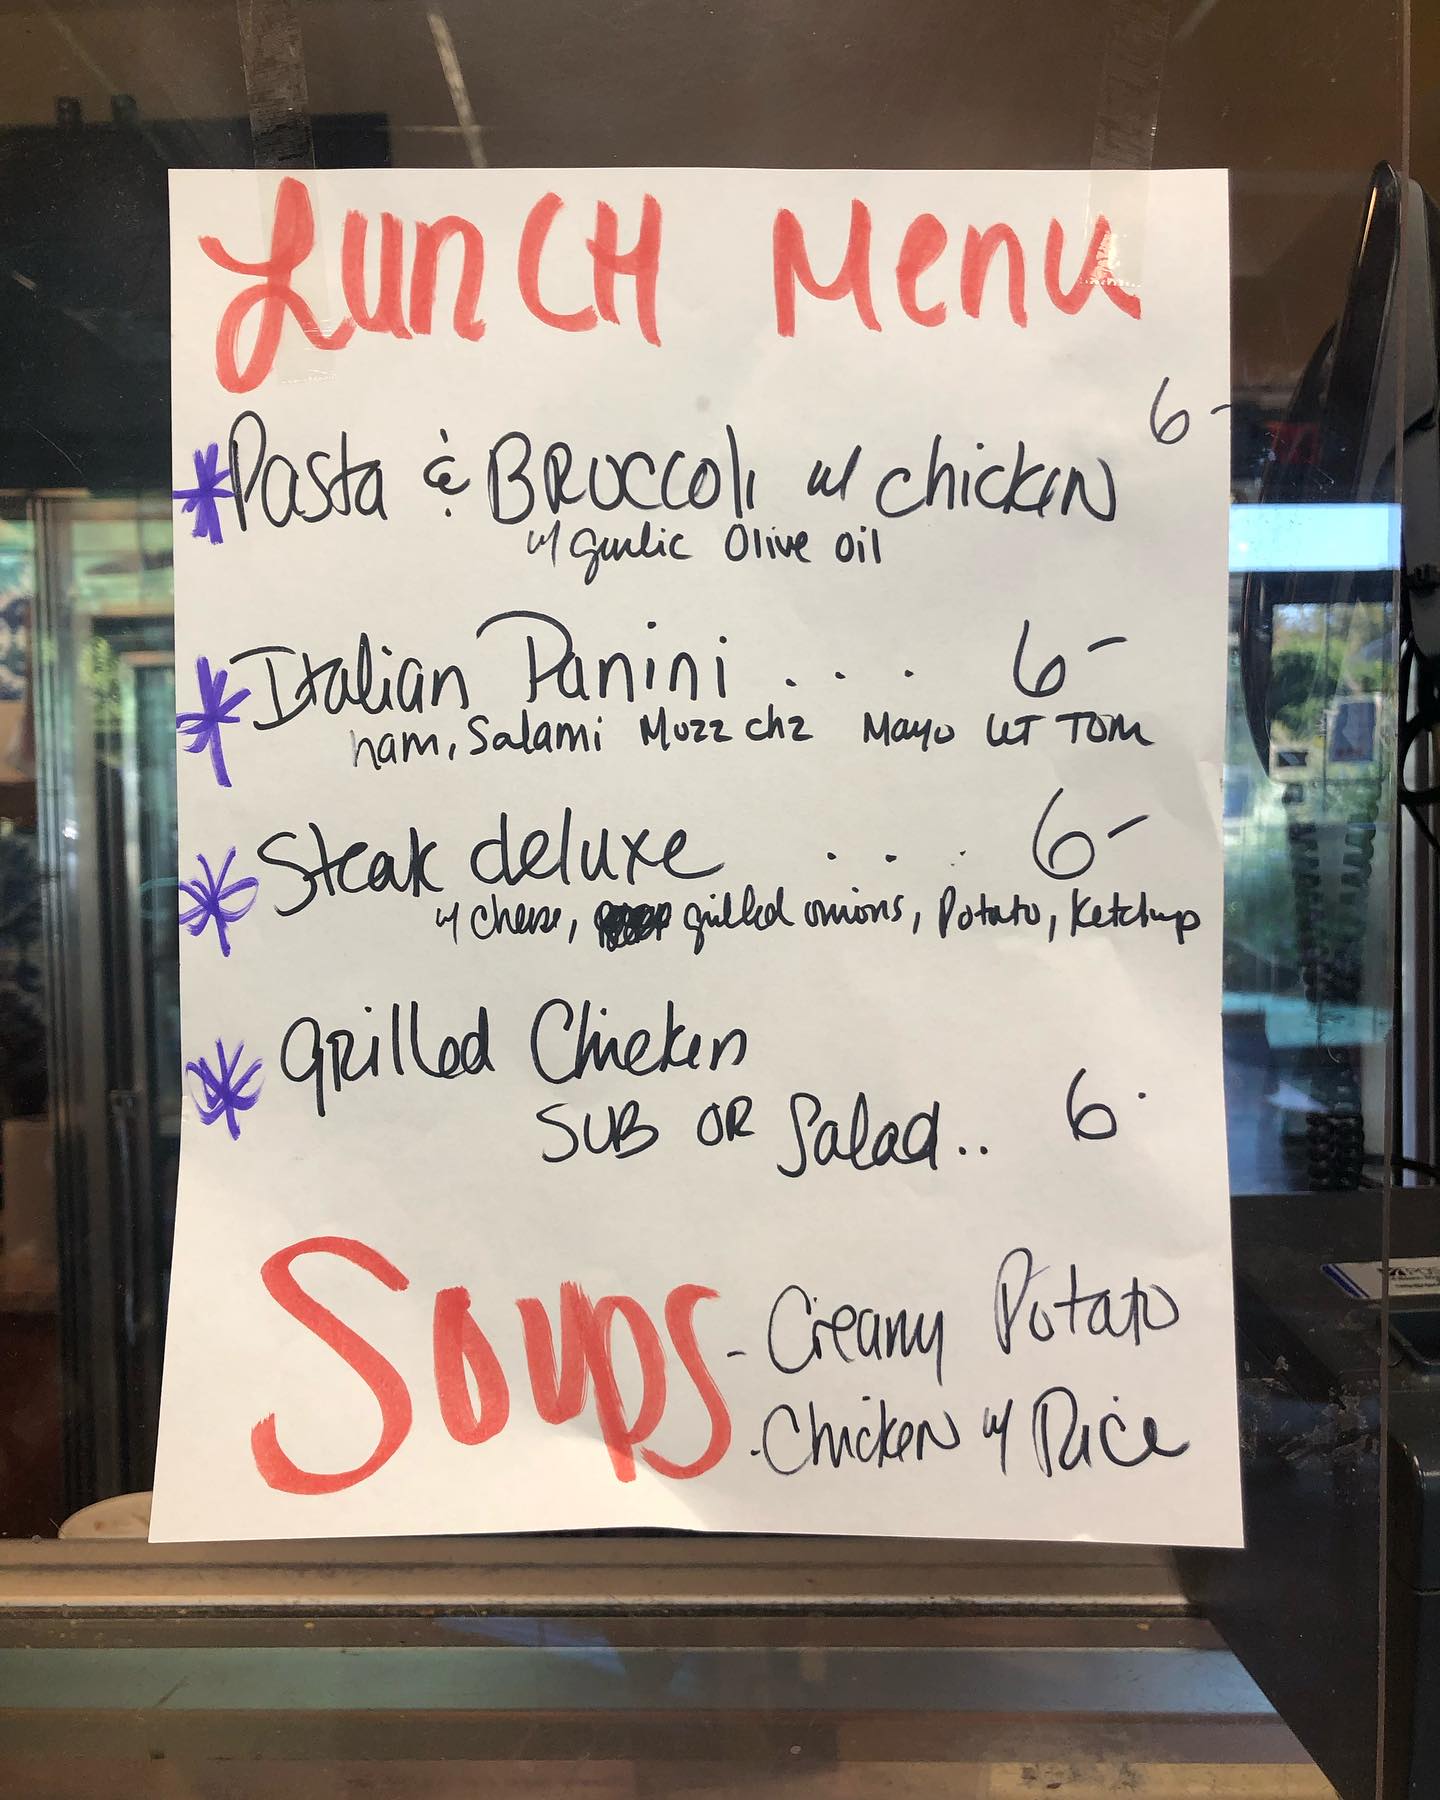 Lunch Menu
6-
*Pasta & BRoccoli w/ chicken
w/ garlic Olive oil
*Italian Panini . . . 6-
ham, Salami Mozz chz Mayo LET TOM
*Steak deluxe . . . 6-
w/ cheese, grilled onions, Potato, Ketchup
*Grilled Chicken
SUB OR Salad.. 6-
Soups - Creamy Potato
- Chicken w/ Rice